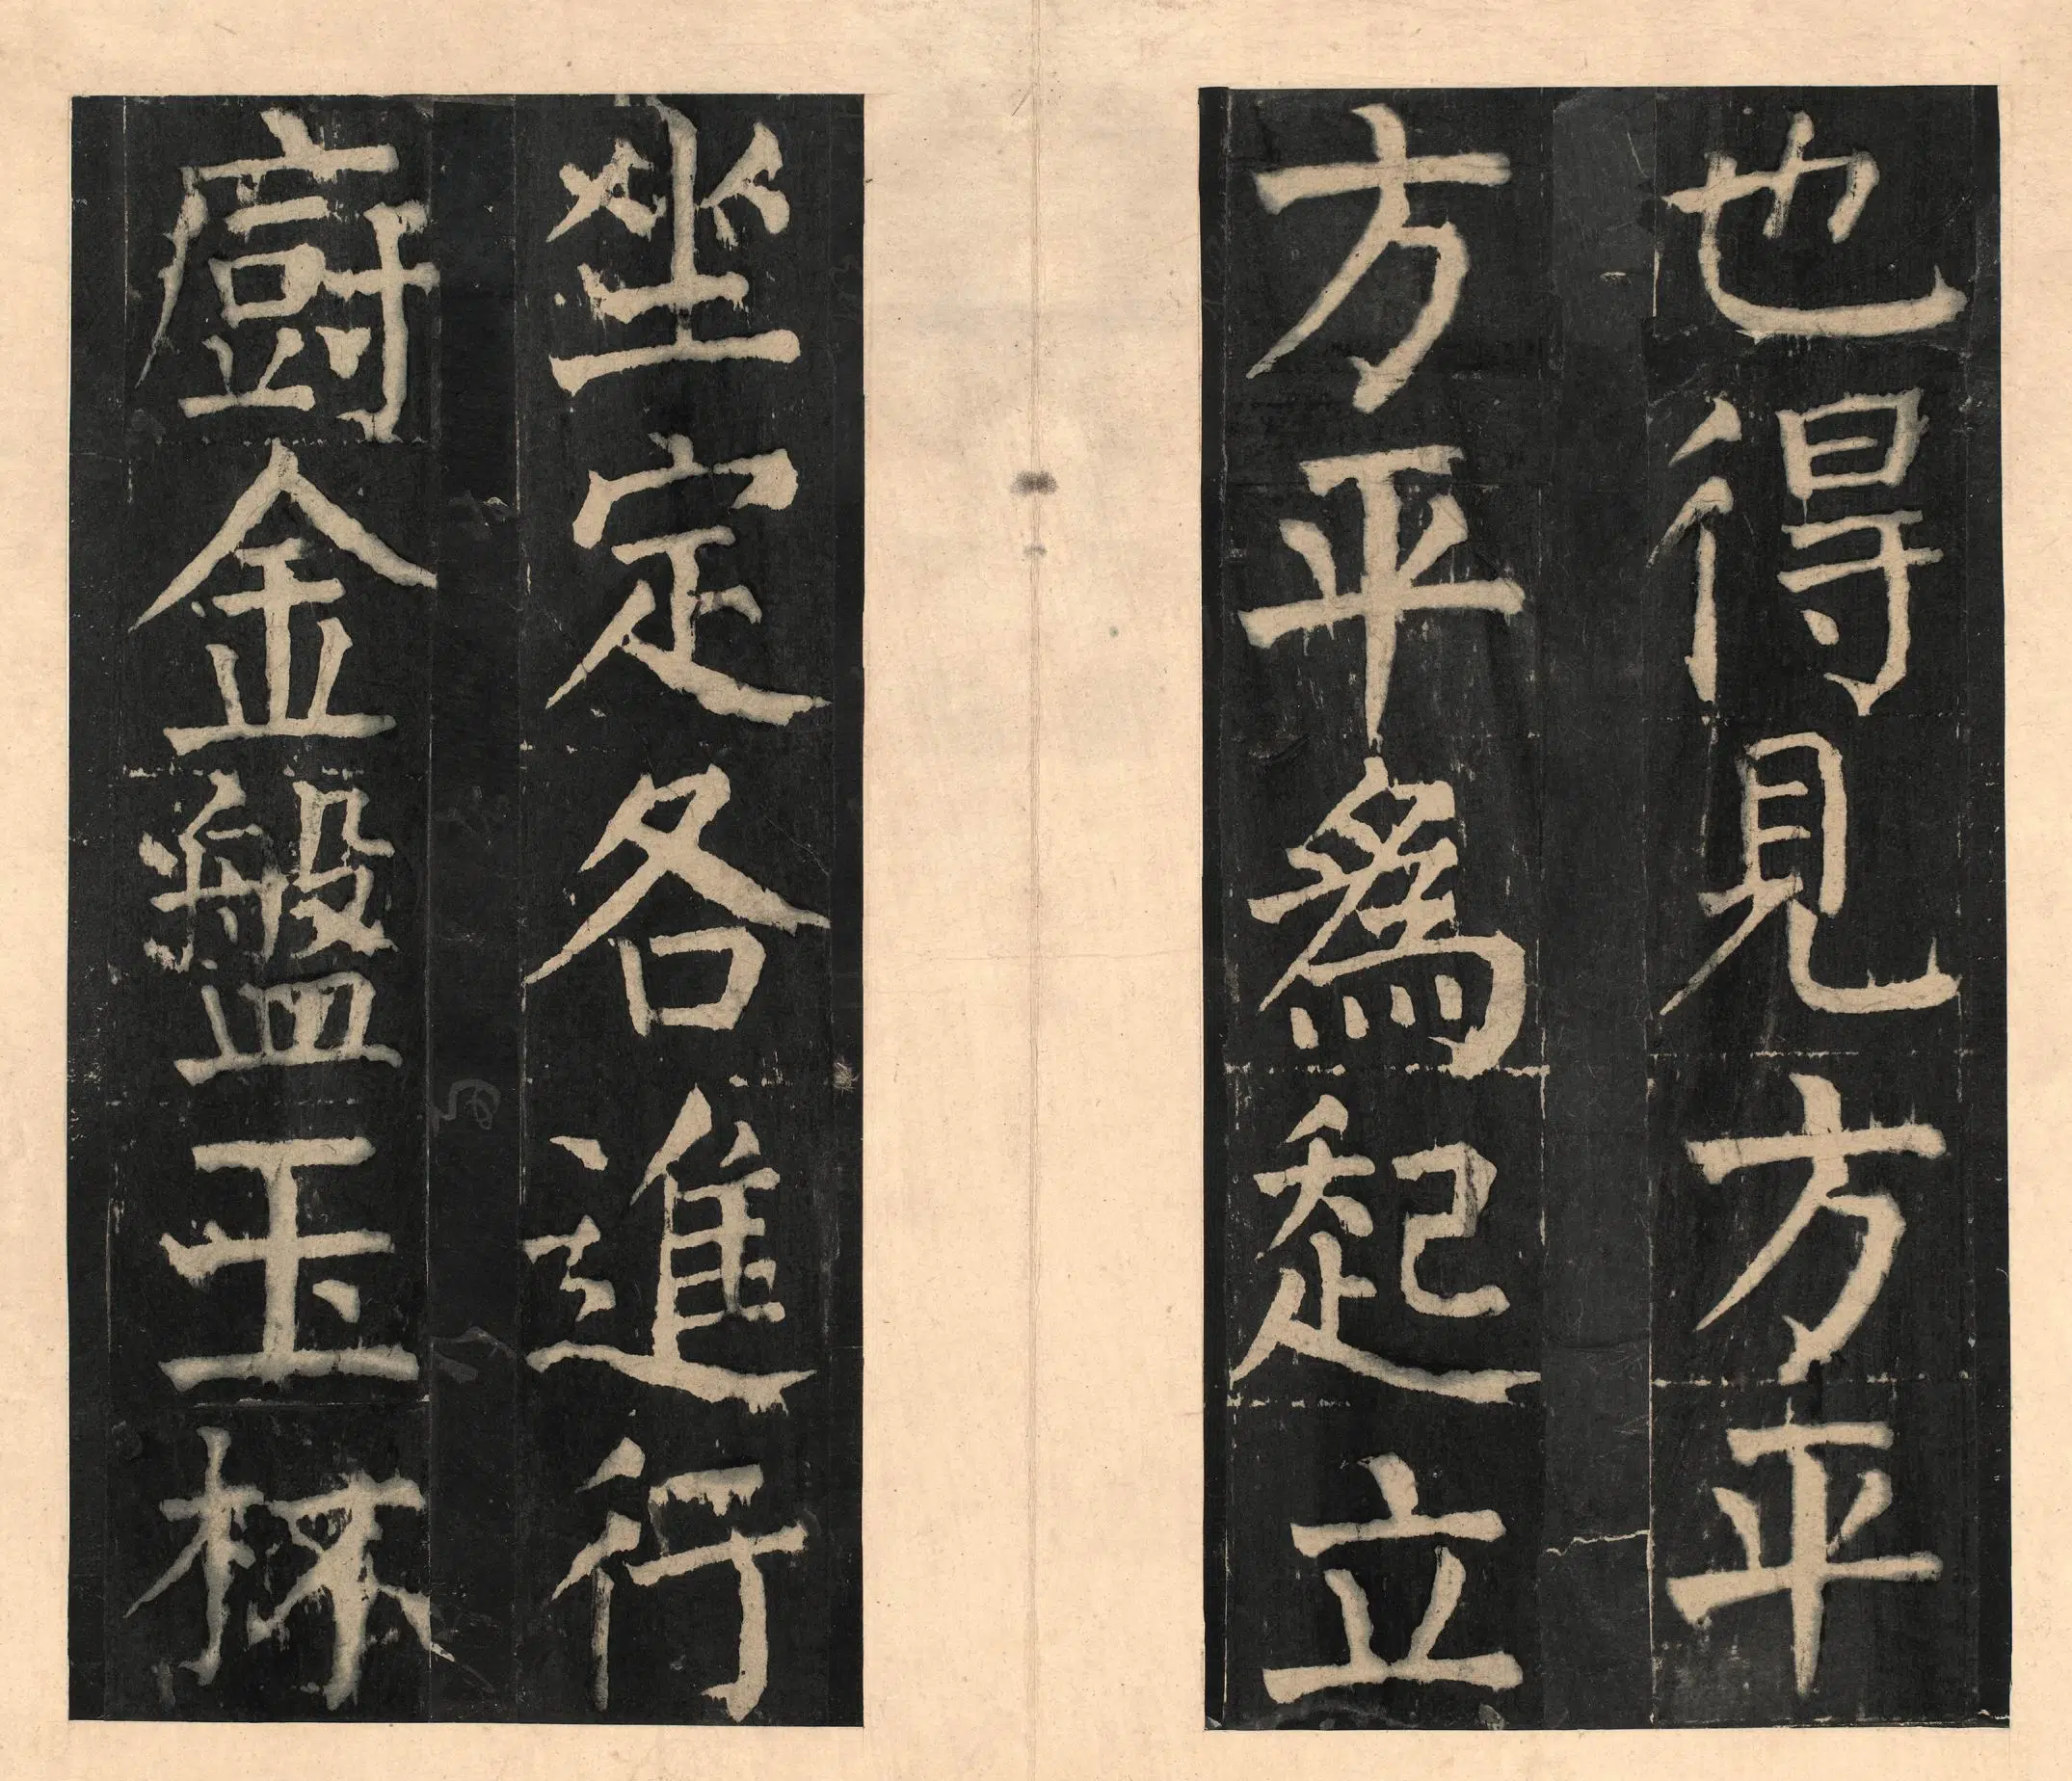 也得見方平
方平爲起立
坐定各進行
廚金盤玉杯